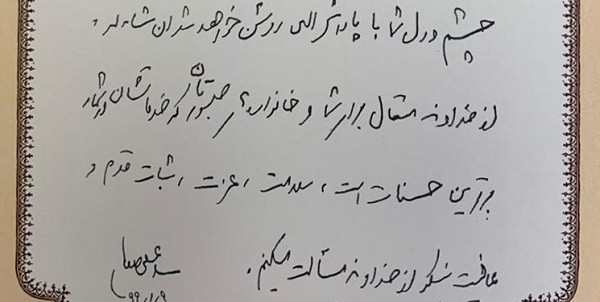 چشم و دل شما با پاداش الهی روشن خواهد شد ان شاء الله.
از خداوند متعال برای شما و خانواده‌ی صبورتان که خدماتشان در شمار
برترین حسنات است، سلامت، عزت، ثبات قدم و
عاقبت بخیری از خداوند مسألت میکنم.
سید علی
۹۹